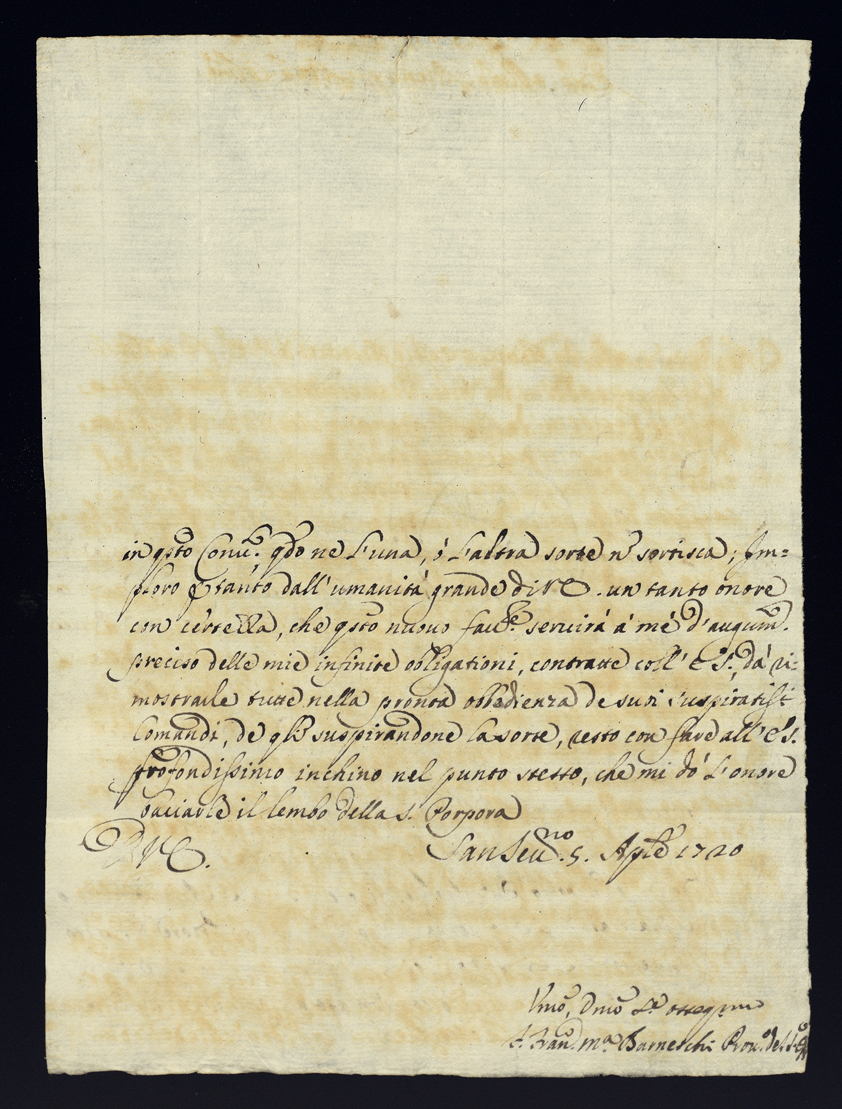 in qsto Conv.to qdo ne l'una, ó l'altra sorte nó sortisca; Im=
ploro p tanto dall'umanitá grande di V E. un tanto onore
con certezza, che qsto nuovo fav.re servirá á mé d'augum.
preciso delle mie infinite obligationi, contratte coll' E S., dá ri=
mostrarle tutte nella pronta obbedienza de suoi suspiratisi
Comandi, de qli suspirandone la sorte, resto con fare all' E S.
profondissimo inchino nel punto stesso, che mi dó l'onore
baciarle il lembo della S. Porpora
D V E.
San Sev.no 5. Aple 1720
Vmo, Dmo Se osseqmo
F. Fran. Ma Bameschi Prov. de